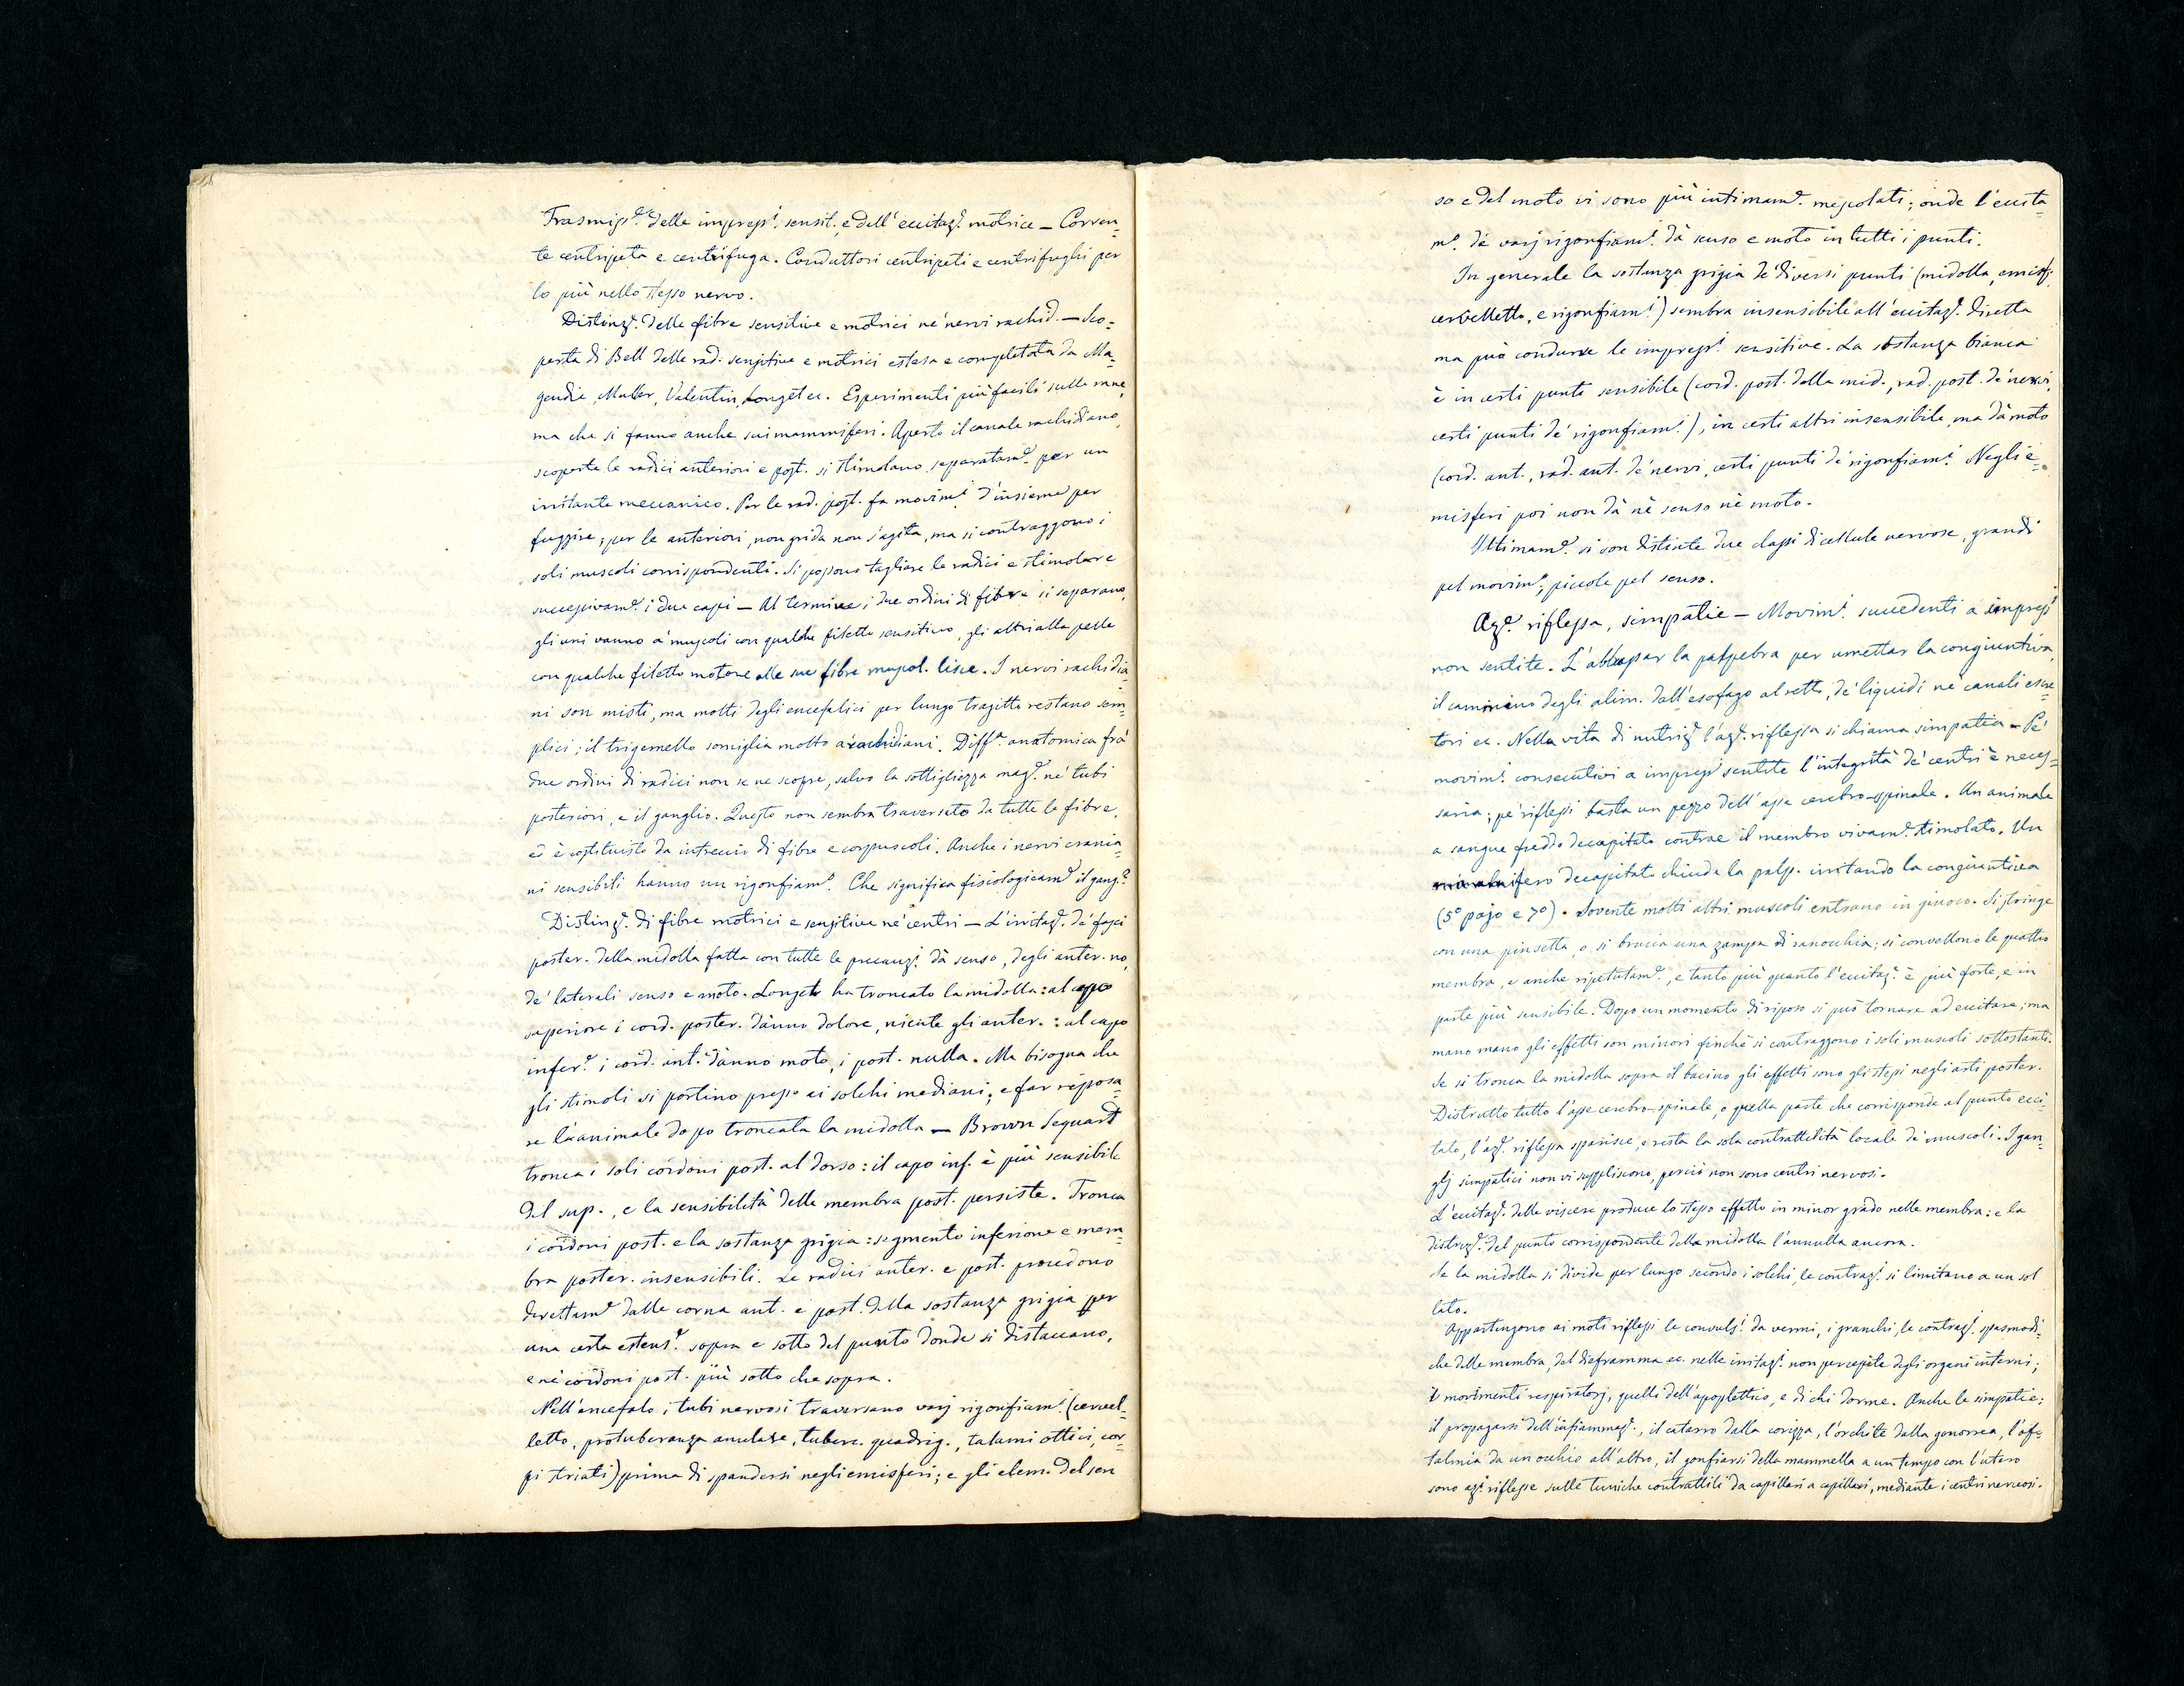 Trasmiss.e delle impress.i sensit. e dell'eccitaz.e motrice — Corren=
te centripeta e centrifuga. Conduttori centripeti e centrifughi per
lo più nello stesso nervo.
Distinz.e delle fibre sensitive e motrici ne' nervi rachid. — Sco=
perta di Bell delle rad. sensitive e motrici estesa e completata da Ma=
gendie, Muller, Valentin, Longet ec. Esperimenti più facili sulle rane,
ma che si fanno anche sui mammiferi. Aperto il canale rachidiano,
scoperte le radici anteriori e post. si stimolano separatam.e per un
irritante meccanico. Per le rad. post. fa movim.i d'insieme per
fuggire; per le anteriori, non grida non s'agita, ma si contraggono i
soli muscoli corrispondenti. Si possono tagliare le radici e stimolare
successivam.e i due capi — Al termine i due ordini di fibre si separano,
gli uni vanno a' muscoli con qualche filetto sensitivo, gli altri alla pelle
con qualche filetto motore alle sue fibre muscol. lisce. I nervi rachidia=
ni son misti, ma molti degli encefalici per lungo tragitto restano sem=
plici; il trigemello somiglia molto a' rachidiani. Diff.a anatomica fra'
due ordini di radici non se ne scopre, salvo la sottigliezza mag.e ne' tubi
posteriori, e il ganglio. Questo non sembra traversato da tutte le fibre,
ed è costituito da intreccio di fibre e corpuscoli. Anche i nervi crania=
ni sensibili hanno un rigonfiam.o. Che significa fisiologicam.e il gang.o?
Distinz.e di fibre motrici e sensitive ne' centri — L'irritaz.e de' fasci
poster. della midolla fatta con tutte le precauz.i dà senso, degli anter. no,
de' laterali senso e moto. Longet ha troncato la midolla: al capo
superiore i cord. poster. dànno dolore, niente gli anter.: al capo
infer.e i cord. ant. dànno moto, i post. nulla. Ma bisogna che
gli stimoli si portino presso ai solchi mediani; e far riposa=
re l'animale dopo troncata la midolla — Brown Sequard
tronca i soli cordoni post. al dorso: il capo inf. è più sensibile
del sup., e la sensibilità delle membra post. persiste. Tronca
i cordoni post. e la sostanza grigia: segmento inferiore e mem=
bra poster. insensibili. Le radici anter. e post. procedono
direttam.e dalle corna ant. e post. della sostanza grigia per
una certa estens.e sopra e sotto del punto donde si distaccano,
e ne' cordoni post. più sotto che sopra.
Nell'encefalo i tubi nervosi traversano varj rigonfiam.i (cervel=
letto, protuberanza anulare, tuberc. quadrig., talami ottici, cor=
pi striati) prima di spandersi negli emisferi; e gli elem. del sen
so e del moto vi sono più intimam.e mescolati; onde l'eccita=
m.o de' varj rigonfiam.i dà senso e moto in tutti i punti.
In generale la sostanza grigia de' diversi punti (midolla, emisf.,
cervelletto, e rigonfiam.i) sembra insensibile all'eccitaz.e diretta
ma può condurre le impress.i sensitive. La sostanza bianca
è in certi punti sensibile (cord. post. della mid., rad. post. de' nervi,
certi punti de' rigonfiam.i), in certi altri insensibile, ma dà moto
(cord. ant., rad. ant. de' nervi, certi punti de' rigonfiam.i Negli e=
misferi poi non dà nè senso nè moto.
Ultimam.e si son distinte due classi di cellule nervose, grandi
pel movim.o, piccole pel senso.
Az.e riflessa, simpatie — Movim.i succedenti a impress.i
non sentite. L'abbassar la palpebra per umettar la congiuntiva,
il cammino degli alim. dall'esofago al retto, de' liquidi ne' canali escre=
tori ec. Nella vita di nutriz.e l'az.e riflessa si chiama simpatia — Pe'
movim.i consecutivi a impress.i sentite l'integrità de' centri è neces=
saria; pe' riflessi basta un pezzo dell'asse cerebro-spinale. Un animale
a sangue freddo decapitato contrae il membro vivam.e stimolato. Un
mammifero decapitato chiude la palp. irritando la congiuntiva
(5º pajo e 7º). Sovente molti altri muscoli entrano in giuoco. Si stringe
con una pinsetta, o si brucia una zampa di ranocchia; si convellono le quattro
membra, e anche ripetutam.e, e tanto più quanto l'eccitaz.e è più forte, e in
parte più sensibile. Dopo un momento di riposo si può tornare ad eccitare; ma
mano mano gli effetti son minori finchè si contraggono i soli muscoli sottostanti.
Se si tronca la midolla sopra il bacino gli effetti sono gli stessi negli arti poster.
Distrutto tutto l'asse cerebro-spinale, o quella parte che corrisponde al punto ecci=
tato, l'az.e riflessa sparisce, e resta la sola contrattilità locale de' muscoli. I gan=
glj simpatici non vi suppliscono, perciò non sono centri nervosi.
L'eccitaz.e delle viscere produce lo stesso effetto in minor grado nelle membra: e la
distruz.e del punto corrispondente della midolla l'annulla ancora.
Se la midolla si divide per lungo secondo i solchi, le contraz.i si limitano a un sol
lato.
Appartengono ai moti riflessi le convuls.i da vermi, i granchi, le contraz.i spasmodi=
che delle membra, del dieframma ec. nelle irritaz.i non percepite degli organi interni;
i movimenti respiratorj, quelli dell'apoplettico, e di chi dorme. Anche le simpatie:
il propagarsi dell'infiammaz.e, il catarro dalla corizza, l'orchite dalla gonorrea, l'oft=
talmia da un occhio all'altro, il gonfiarsi della mammella a un tempo con l'utero
sono az.i riflesse sulle tuniche contrattili da capillari a capillari, mediante i centri nervosi.